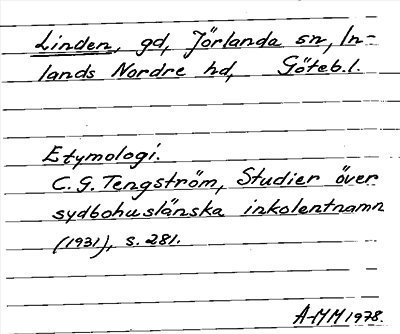 Linden, gd, Jörlanda sn, In-
lands Nordre hd, Göteb. l.
Etymologi.
C. G. Tengström, Studier över
sydbohuslänska inkolentnamn
(1931), s. 281.
A-MM 1978.